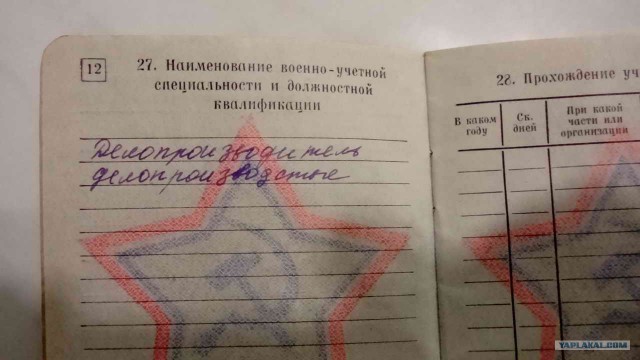 12
27. Наименование военно-учетной
специальности и должностной
квалификации
Делопроизводитель
делопроизводство
28. Прохождение уч
В каком
году
Ск.
дней
При какой
части или
организации
YAPLAKAL.COM